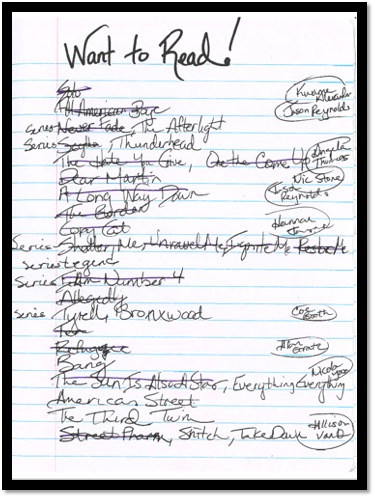 Want to Read!
Solo Kwame Alexander
All American Boys Jason Reynolds
Series Never Fade, The Afterlight
Series Scythe, Thunderhead
The Hate You Give, On the Come Up Angela Thomas
Dear Martin Nic Stone
A Long Way Down Jason Reynolds
The Border
Copy Cat Hannah
Series Shatter Me, Unravel Me, Ignite Me, Restore Me
series Legend
Series I Am Number 4
Allegedly
Series Tyrell, Bronxwood Coe Booth
Refugee Alan Gratz
Bang
The Sun Is Also A Star, Everything Everything Nicola Yoon
American Street
The Third Twin
Street Pharm, Snitch, Takedown Allison Van D